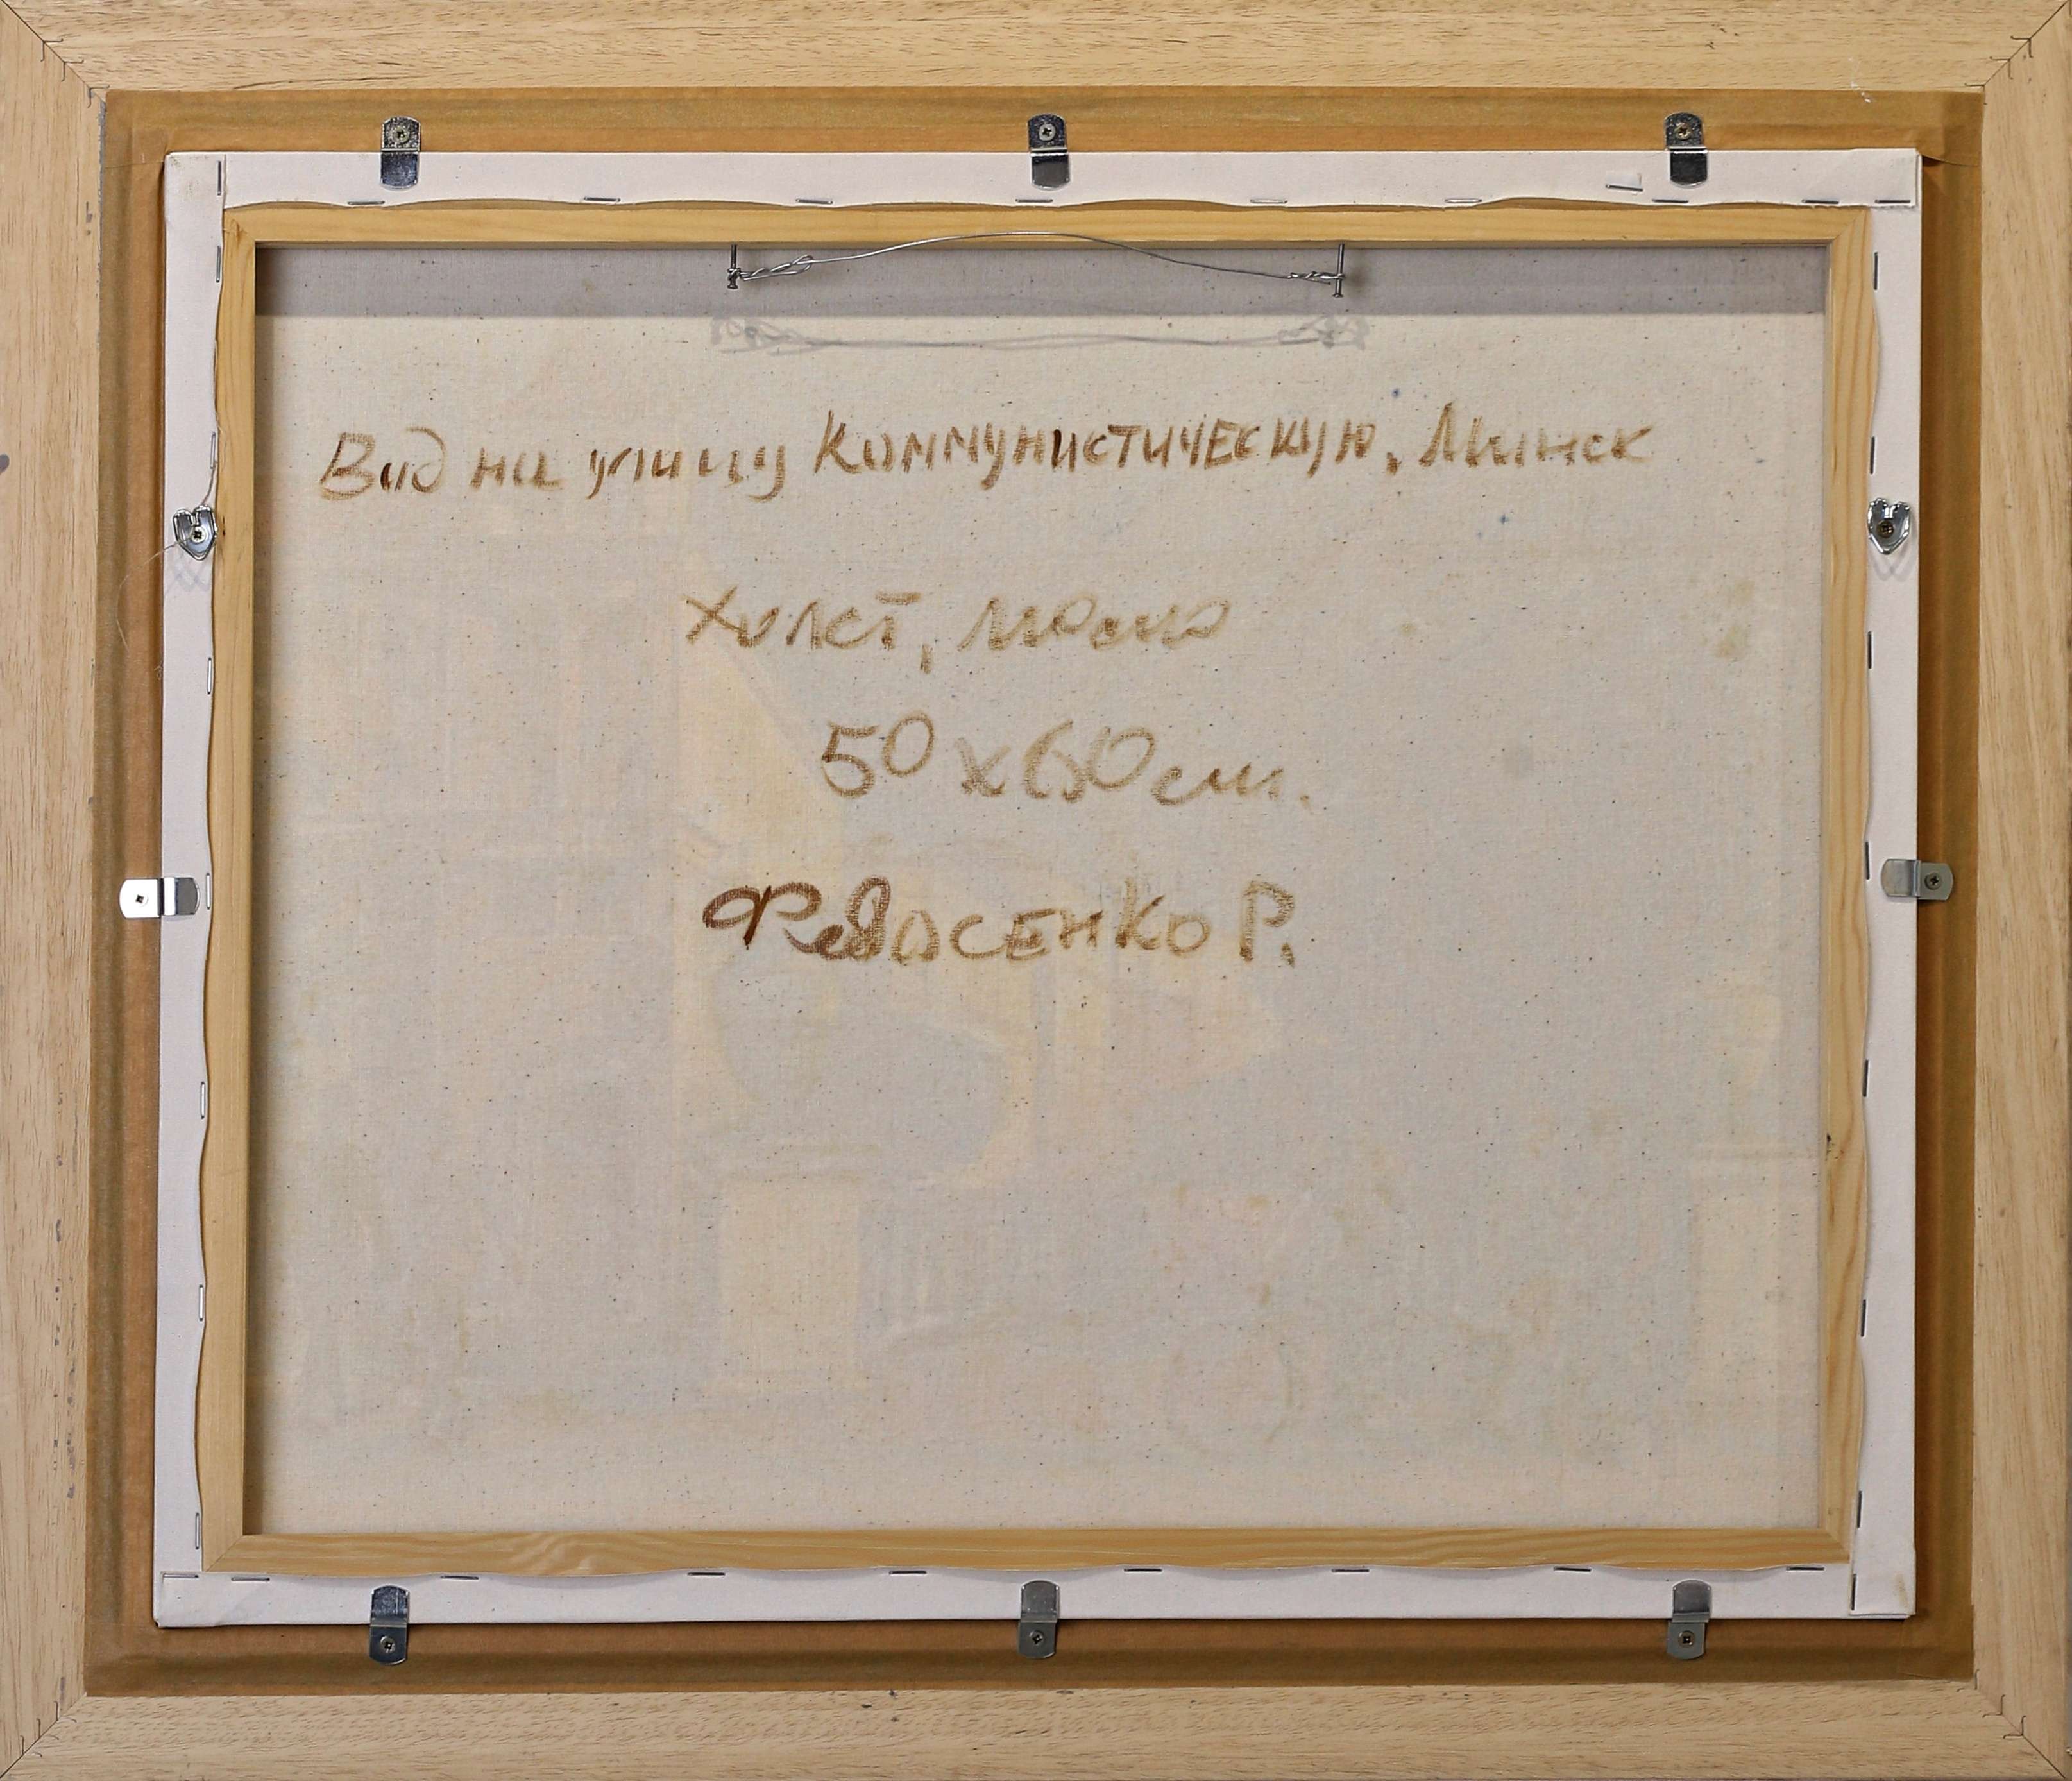 Вид на улицу Коммунистическую, Минск
Холст, масло
50х60см.
Федосенко Р.